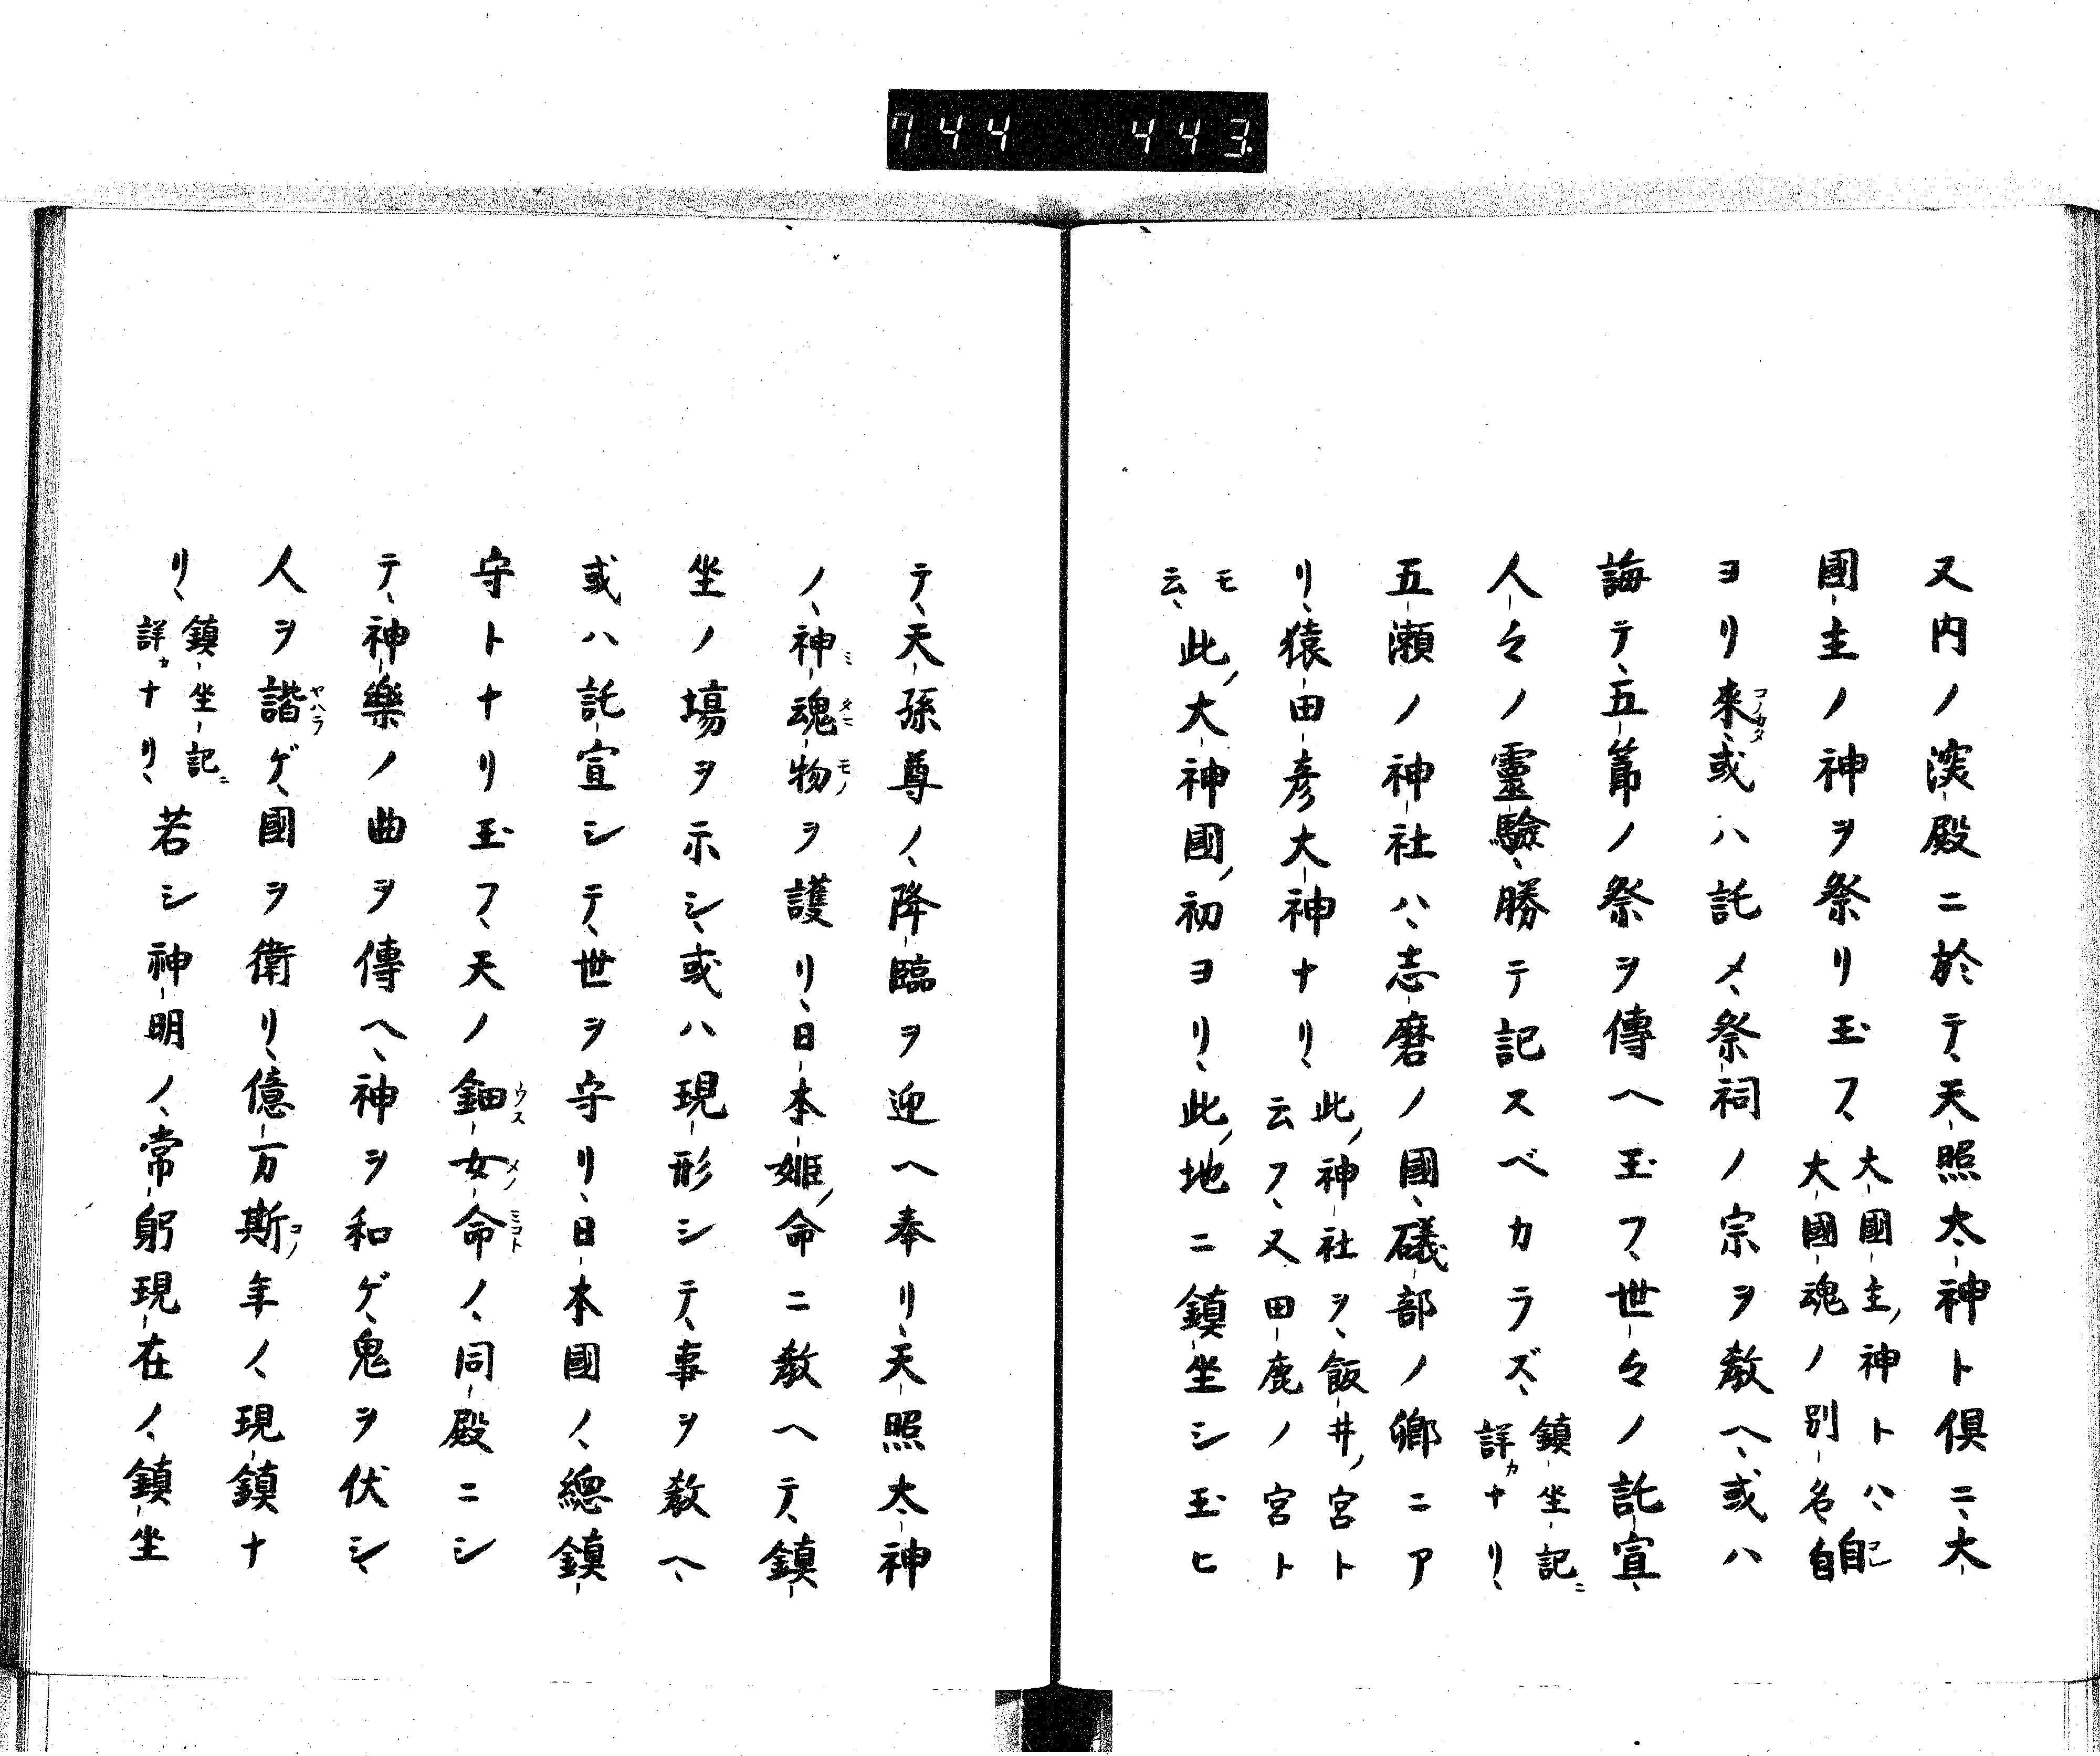 744 443
又内ノ深殿ニ於テ、天照太神ト倶ニ、大
國主ノ神ヲ祭リ玉フ、大國主ノ神トハ、自
大國魂ノ別名、自
ヨリ來、或ハ託〆、祭祠ノ宗ヲ教ヘ、或ハ
コノカタ
誨テ、五節ノ祭ヲ傳ヘ玉フ、世々ノ託宣、
人々ノ靈驗、勝テ記スベカラズ、鎮坐記ニ
詳カナリ、
五瀬ノ神社ハ、志磨ノ國、礒部ノ郷ニア
リ、猿田彦大神ナリ、此ノ神社ヲ、飯井ノ宮ト
云フ、又田鹿ノ宮ト
モ
云、此ノ大神國ノ初ヨリ、此ノ地ニ鎮坐シ玉ヒ
テ、天孫尊ノ、降臨ヲ迎ヘ奉リ、天照太神
ノ、神魂物ヲ護リ、日本姫ノ命ニ教ヘテ、鎮
ミタマモノ
坐ノ場ヲ示シ、或ハ現形シテ、事ヲ教ヘ、
或ハ託宣シテ、世ヲ守リ、日本國ノ、總鎮
守トナリ玉フ、天ノ鈿女命ノ、同殿ニシ
ウスメノミコト
テ、神樂ノ曲ヲ傳ヘ、神ヲ和ゲ、鬼ヲ伏シ、
人ヲ諧ゲ、國ヲ衛リ、億万斯年ノ、現鎮ナ
ヤハラ
コノ
リ、鎮坐記ニ
詳カナリ、若シ神明ノ、常躬現在ノ、鎮坐